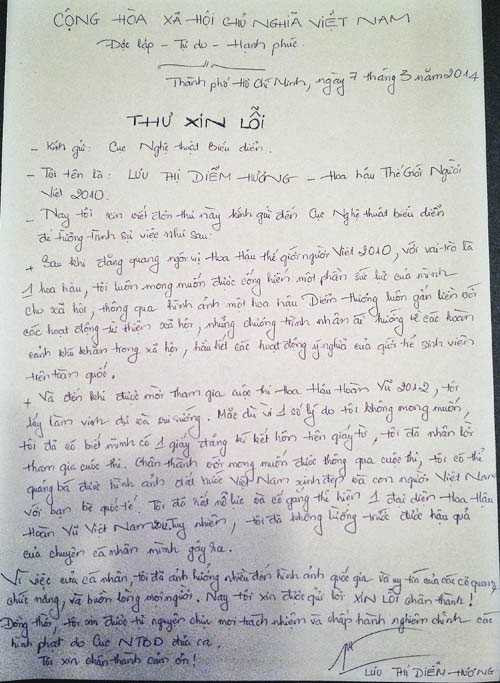 CỘNG HÒA XÃ HỘI CHỦ NGHĨA VIỆT NAM
Độc lập - Tự do - Hạnh phúc
Thành phố Hồ Chí Minh, ngày 7 tháng 3 năm 2014
THƯ XIN LỖI
- Kính gửi: Cục Nghệ thuật biểu diễn.
- Tôi tên là: LƯU THỊ DIỄM HƯƠNG - Hoa hậu Thế Giới Người
Việt 2010.
- Nay tôi xin viết đơn thư này kính gửi đến Cục Nghệ thuật biểu diễn
để tường trình sự việc như sau:
+ Sau khi đăng quang ngôi vị Hoa Hậu thế giới người Việt 2010, với vai trò là
1 hoa hậu, tôi luôn mong muốn được cống hiến một phần sức lực của mình
cho xã hội, thông qua hình ảnh một hoa hậu Diễm Hương luôn gắn liền với
các hoạt động từ thiện xã hội, những chương trình nhân ái hướng về các hoàn
cảnh khó khăn trong xã hội, hầu hết các hoạt động ý nghĩa của giới trẻ sinh viên
trên toàn quốc.
+ Và đến khi được mời tham gia cuộc thi Hoa Hậu Hoàn Vũ 2012, tôi
lấy làm vinh dự và vui sướng. Mặc dù vì 1 số lý do tôi không mong muốn,
tôi đã có biết mình có 1 giấy đăng ký kết hôn trên giấy tờ, tôi đã nhận lời
tham gia cuộc thi. Chân thành với mong muốn được thông qua cuộc thi, tôi có thể
quảng bá được hình ảnh đất nước Việt Nam xinh đẹp và con người Việt Nam
với bạn bè quốc tế. Tôi đã hết nỗ lực và cố gắng thể hiện 1 đại diện Hoa Hậu
Hoàn Vũ Việt Nam. Tuy nhiên, tôi đã không lường trước được hậu quả
của chuyện cá nhân mình gây ra.
Vì việc của cá nhân, tôi đã ảnh hưởng nhiều đến hình ảnh quốc gia và uy tín của các cơ quan
chức năng, và buồn lòng mọi người. Nay tôi xin được gửi lời XIN LỖI chân thành!
Đồng thời, tôi xin được tự nguyện chịu mọi trách nhiệm và chấp hành nghiêm chỉnh các
hình phạt do Cục NTBD đưa ra.
Tôi xin chân thành cảm ơn!
LƯU THỊ DIỄM HƯƠNG